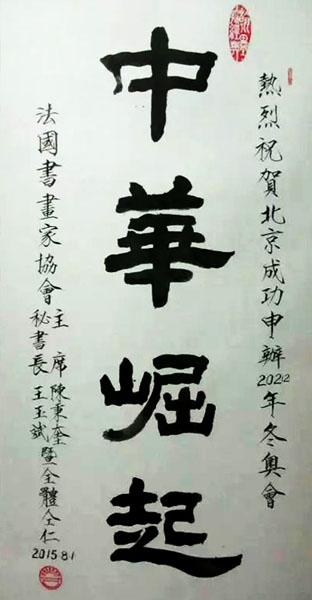 熱烈祝賀北京成功申辦2022年冬奧會
中華崛起
法國書畫家協會
主席陳秉奎
秘書長王玉斌
暨全體仝仁
2015.8.1